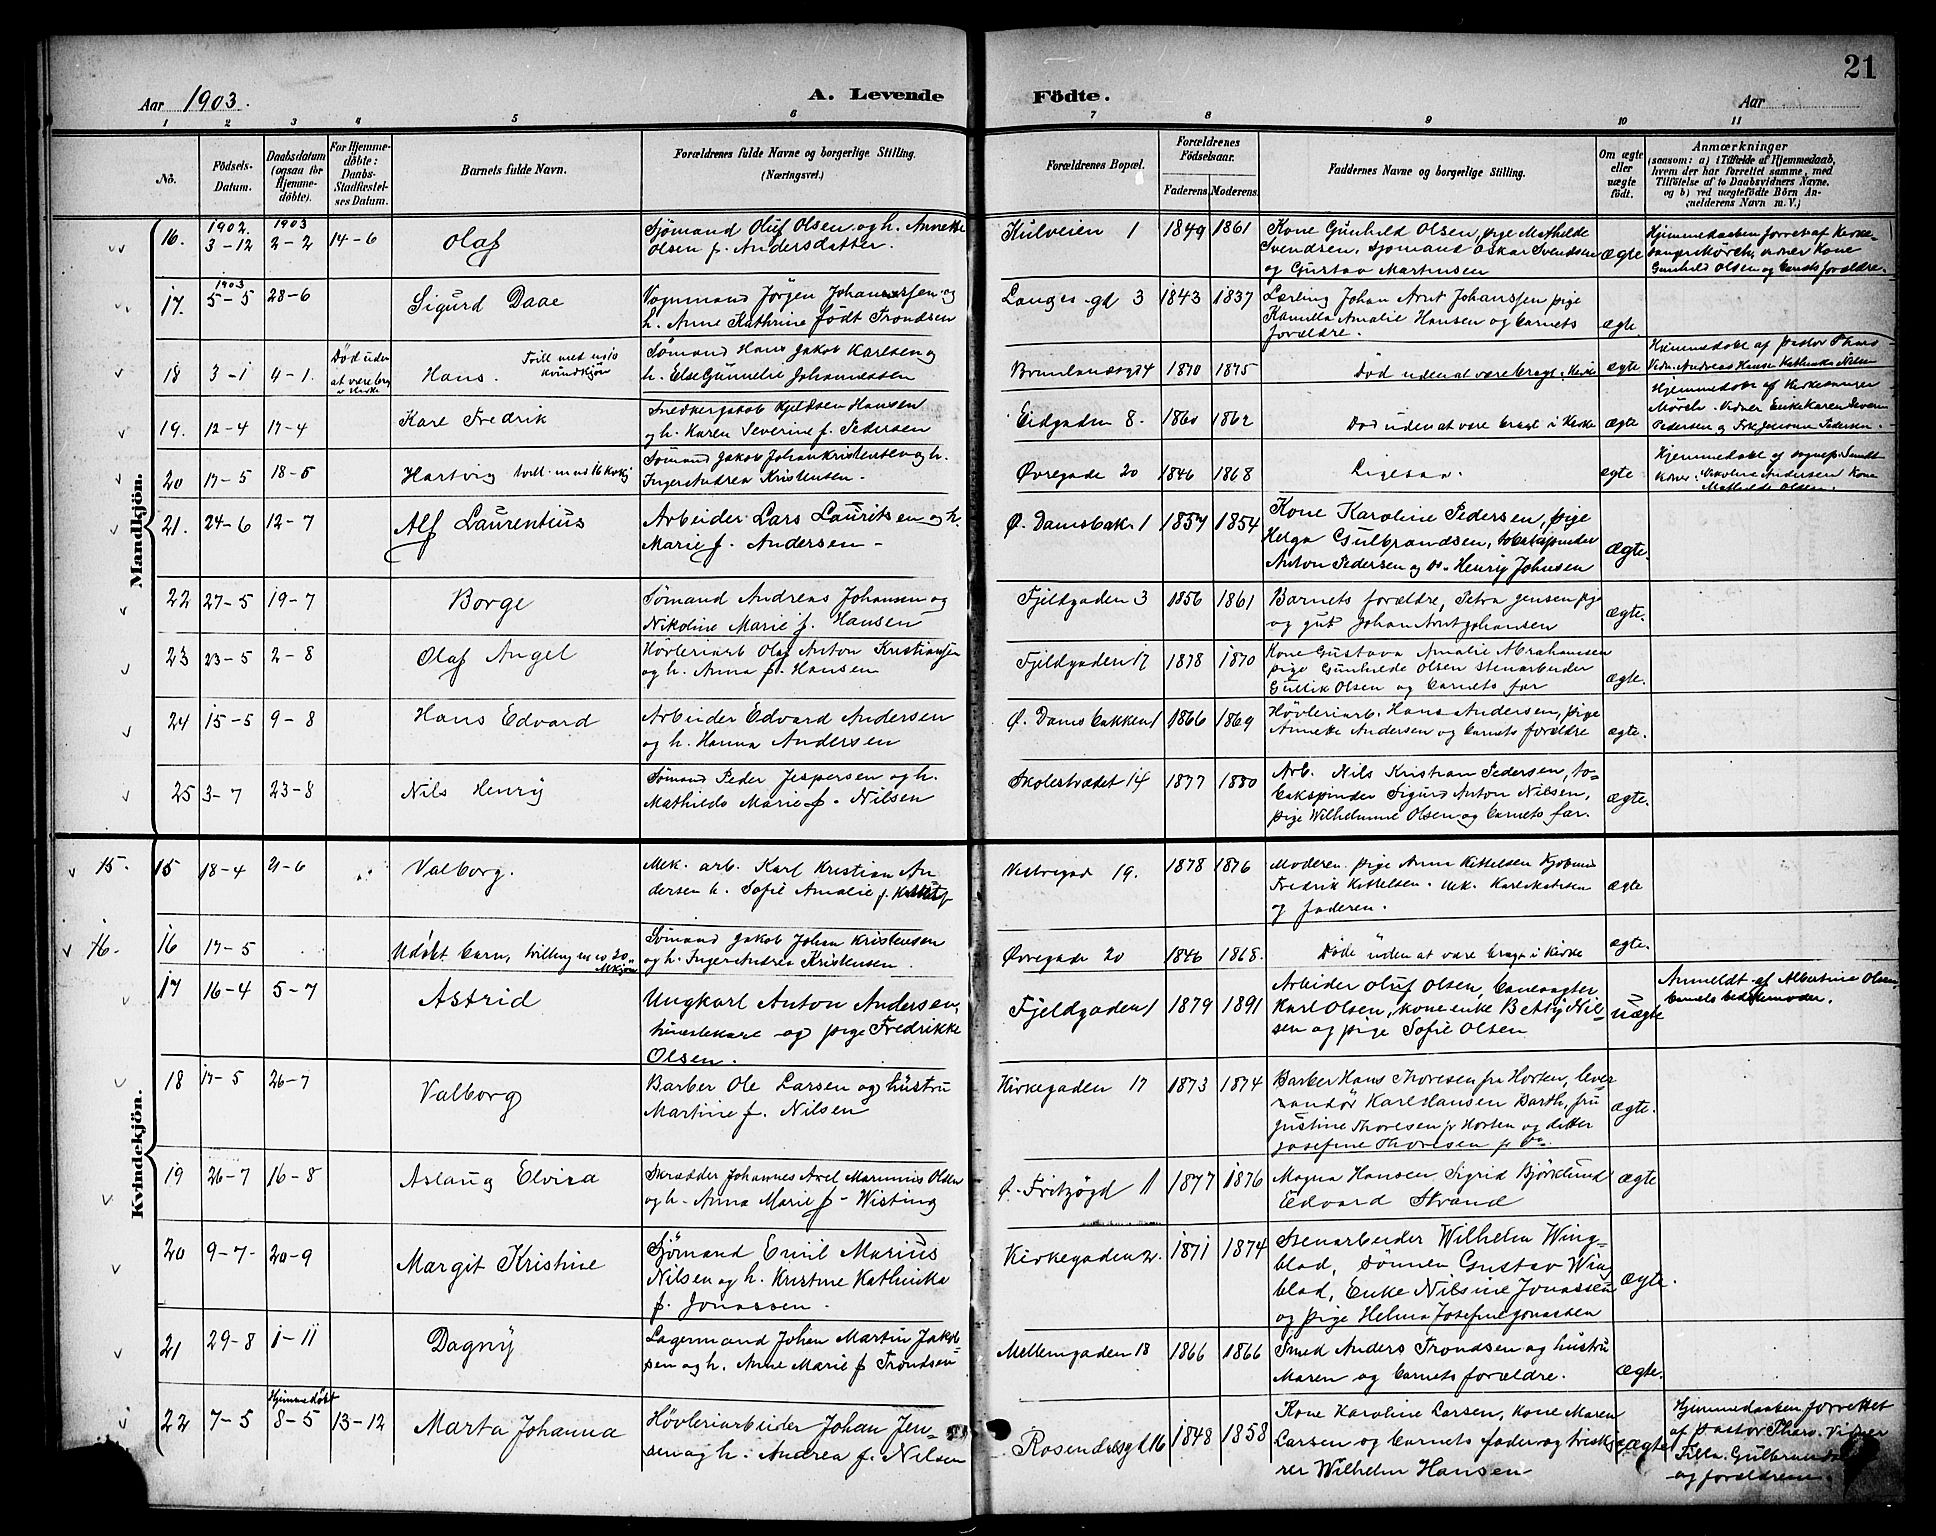 21
Aar 1903.
A. Levende Födte.
Aar
1 2 3 4 5 6 7 8 9 10 11
No.
Födsels-Datum.
Daabsdatum (ogsaa for Hjemmedöbte).
For Hjemmedöbte: Daabs-Stadfæstelses Datum.
Barnets fulde Navn.
Forældrenes fulde Navne og borgerlige Stilling.
(Næringsvei.)
Forældrenes Bopæl.
Forældrenes Födselsaar.
Faderens. Moderens.
Faddernes Navne og borgerlige Stilling.
Om ægte eller uægte födt.
Anmærkninger
(saasom: a) i Tilfælde af Hjemmedaab, hvem der har forrettet samme, med Tilföielse af to Daabsvidners Navne, og b) ved uægtefödte Börn Anmelderens Navn m. V.)
Mandkjön.
16. 1902. 3-12 1903 2-2 14-6 Olaf
Sjømand Oluf Olsen og h. Annette
Olsen f. Andersdatter.
Kulveien 1 1849 1861
Kone Gunhild Olsen, pige Mathilde
Svendsen, sjømand Oskar Svendsen
og Gustav Martinsen
ægte
Hjemmedaaben forret. af Kirke-
sanger Mørch, vidner Kone
Gunhild Olsen og barnets forældre.
17. 1903 5-5 28-6 Sigurd Daae
Vognmand Jørgen Johannesen og
h. Anne Kathrine født Trondsen
Langes gd 3 1843 1837
Lærling Johan Arnt Johanssen pige
Kamilla Amalie Hansen og barnets
forældre.
ægte
18 3-1 4-1. Død uden at være brag i Kirke
Hans. Tvill. med
kvindkjøn
Sømand Hans Jakob Karlsen og
h. Else Gunnelie Johannessen
Brunlandsgt 4 1870 1875
Død uden at være bragt i Kirke
ægte
Hjemmedøbt af pastor
19. 12-4 17-4 Kare Fredrik
Snedker Jakob Kjeldsen Hansen
og h. Karen Severine f. Pedersen
Eidgaden 8. 1860 1862
Død uden at være bragt i Kirke
ægte
Hjemmedøbt af Kirkesanger
Mørch. Vidner Enke Karen Severine
Pedersen og Frk. Pedersen.
20 17-5 18-5 Hartvig
Sømand Jakob Johan Kristensen og h.
Inger Andrea Kristensen.
Øvregade 20 1846 1868
Ligesaa.
ægte
Hjemmedøbt af sognep.
Koner: Nikoline Andersen Kone
Mathilde Olsen.
21. 24-6 12-7 Alf Laurentius
Arbeider Lars Lauritsen og h.
Marie f. Andersen -
Ø. Damsbak. 1 1857 1854
Kone Karoline Pedersen, pige
Helga Gulbrandsen, tobakspinder
Anton Pedersen og do. Henrij Johnsen
ægte.
22 27-5 19-7 Borge
Sømand Andreas Johansen og
Nikoline Marie f. Hansen
Fjeldgaden 3 1856 1861
Barnets forældre, Petra Jensen pige
og gut Johan Arnt Johansen
ægte.
23 23-5 2-8 Olaf Angel
Høvleriarb Olaf Anton Kristiansen
og h. Anna f. Hansen
Fjeldgaden 17 1878 1870
Kone Gustava Amalie Abrahamsen
pige Gunhilde Olsen stenarbeider
Gullik Olsen og barnets far
ægte.
24 15-5 9-8 Hans Edvard
Arbeider Edvard Andersen
og h. Hanna Andersen
Ø. Damsbakken 1 1866 1869
Høvleriarb. Hans Andersen, pige
Annette Andersen og barnets forældre
ægte.
25 3-7 23-8 Nils Henry
Sømand Peder Jespersen og h.
Mathilde Marie f. Nilsen
Skolestrædet 14 1877 1880
Arb. Nils Kristian Pedersen, to-
bakspinder Sigurd Anton Nilsen,
pige Wilhelmine Olsen og barnets far.
ægte.
Kvindekjön.
15. 15 18-4 21-6 Valborg.
Mek. arb. Karl Kristian An
dersen h. Sofie Amalie f.
Vestregad 19. 1878 1876
Moderen pige Anna Kittelsen
Fredrik Kittelsen.
og faderen.
ægte
16. 16 17-5 Udøbt barn,
Sømand Jakob Johan Kristensen
og h. Inger Andrea Kristensen.
Øvregade 20 1846 1868.
Døde uden at være bragt i Kirke
ægte.
17 16-4 5-7 Astrid
Ungkarl Anton Andersen,
og pige Fredrikke
Olsen.
Fjeldgaden 1 1879 1891
Arbeider Oluf Olsen, banevogter
Karl Olsen, kone enke Betty Nil-
sen og pige Sofie Olsen
uægte
Anmeldt af Albertine Olsen
barnets bedstemoder.
18 17-5 26-7 Valborg
Barber Ole Larsen og hustru
Martine f. Nilsen
Kirkegaden 17 1873 1874
Barber Hans Thoresen fra Horten, lever
andør Karl Hansen Barth, fru
Justine Thoresen fr Horten og datter
Josefine Thoresen fr do
ægte.
19 26-7 16-8 Aslaug Elvira
Skrædder Johannes Axel Marinius Olsen
og h. Anna Marie f- Wisting
Ø. Fritzøgd 11 1877 1876
Magna Hansen Sigrid Bjørklund
Edvard Strand
ægte
20 9-7- 20-9 Margit Kristine
Sjømand Emil Marius
Nilsen og h. Kristine Kathinka
f. Jonassen.
Kirkegaden 2. 1871 1874
Stenarbeider Wilhelm Wing-
blad, sønnen Gustav Wing
blad, Enke Nilsine Jonassen
og pige Helma Josefine Jonassen
ægte.
21 29-8 1-11 Dagny
Lagermand Johan Martin Jakob-
sen og h. Anne Marie f Trondsen
Mellemgaden 18 1866 1866
Smed Anders Trondsen og hustru
Maren og barnets forældre.
ægte.
22 7-5 Hjemmedøbt 8-5 13-12 Marta Johanna
Høvleriarbeider Johan Jen-
sen og h. Andrea f. Nilsen
Rosendalsgt 16 1848 1858
Kone Karoline Larsen, kone Maren
Larsen og barnets fader og
Wilhelm Hansen
ægte
Hjemmedaaben forrettet
af pastor Thers. Vidner
og forældrene.